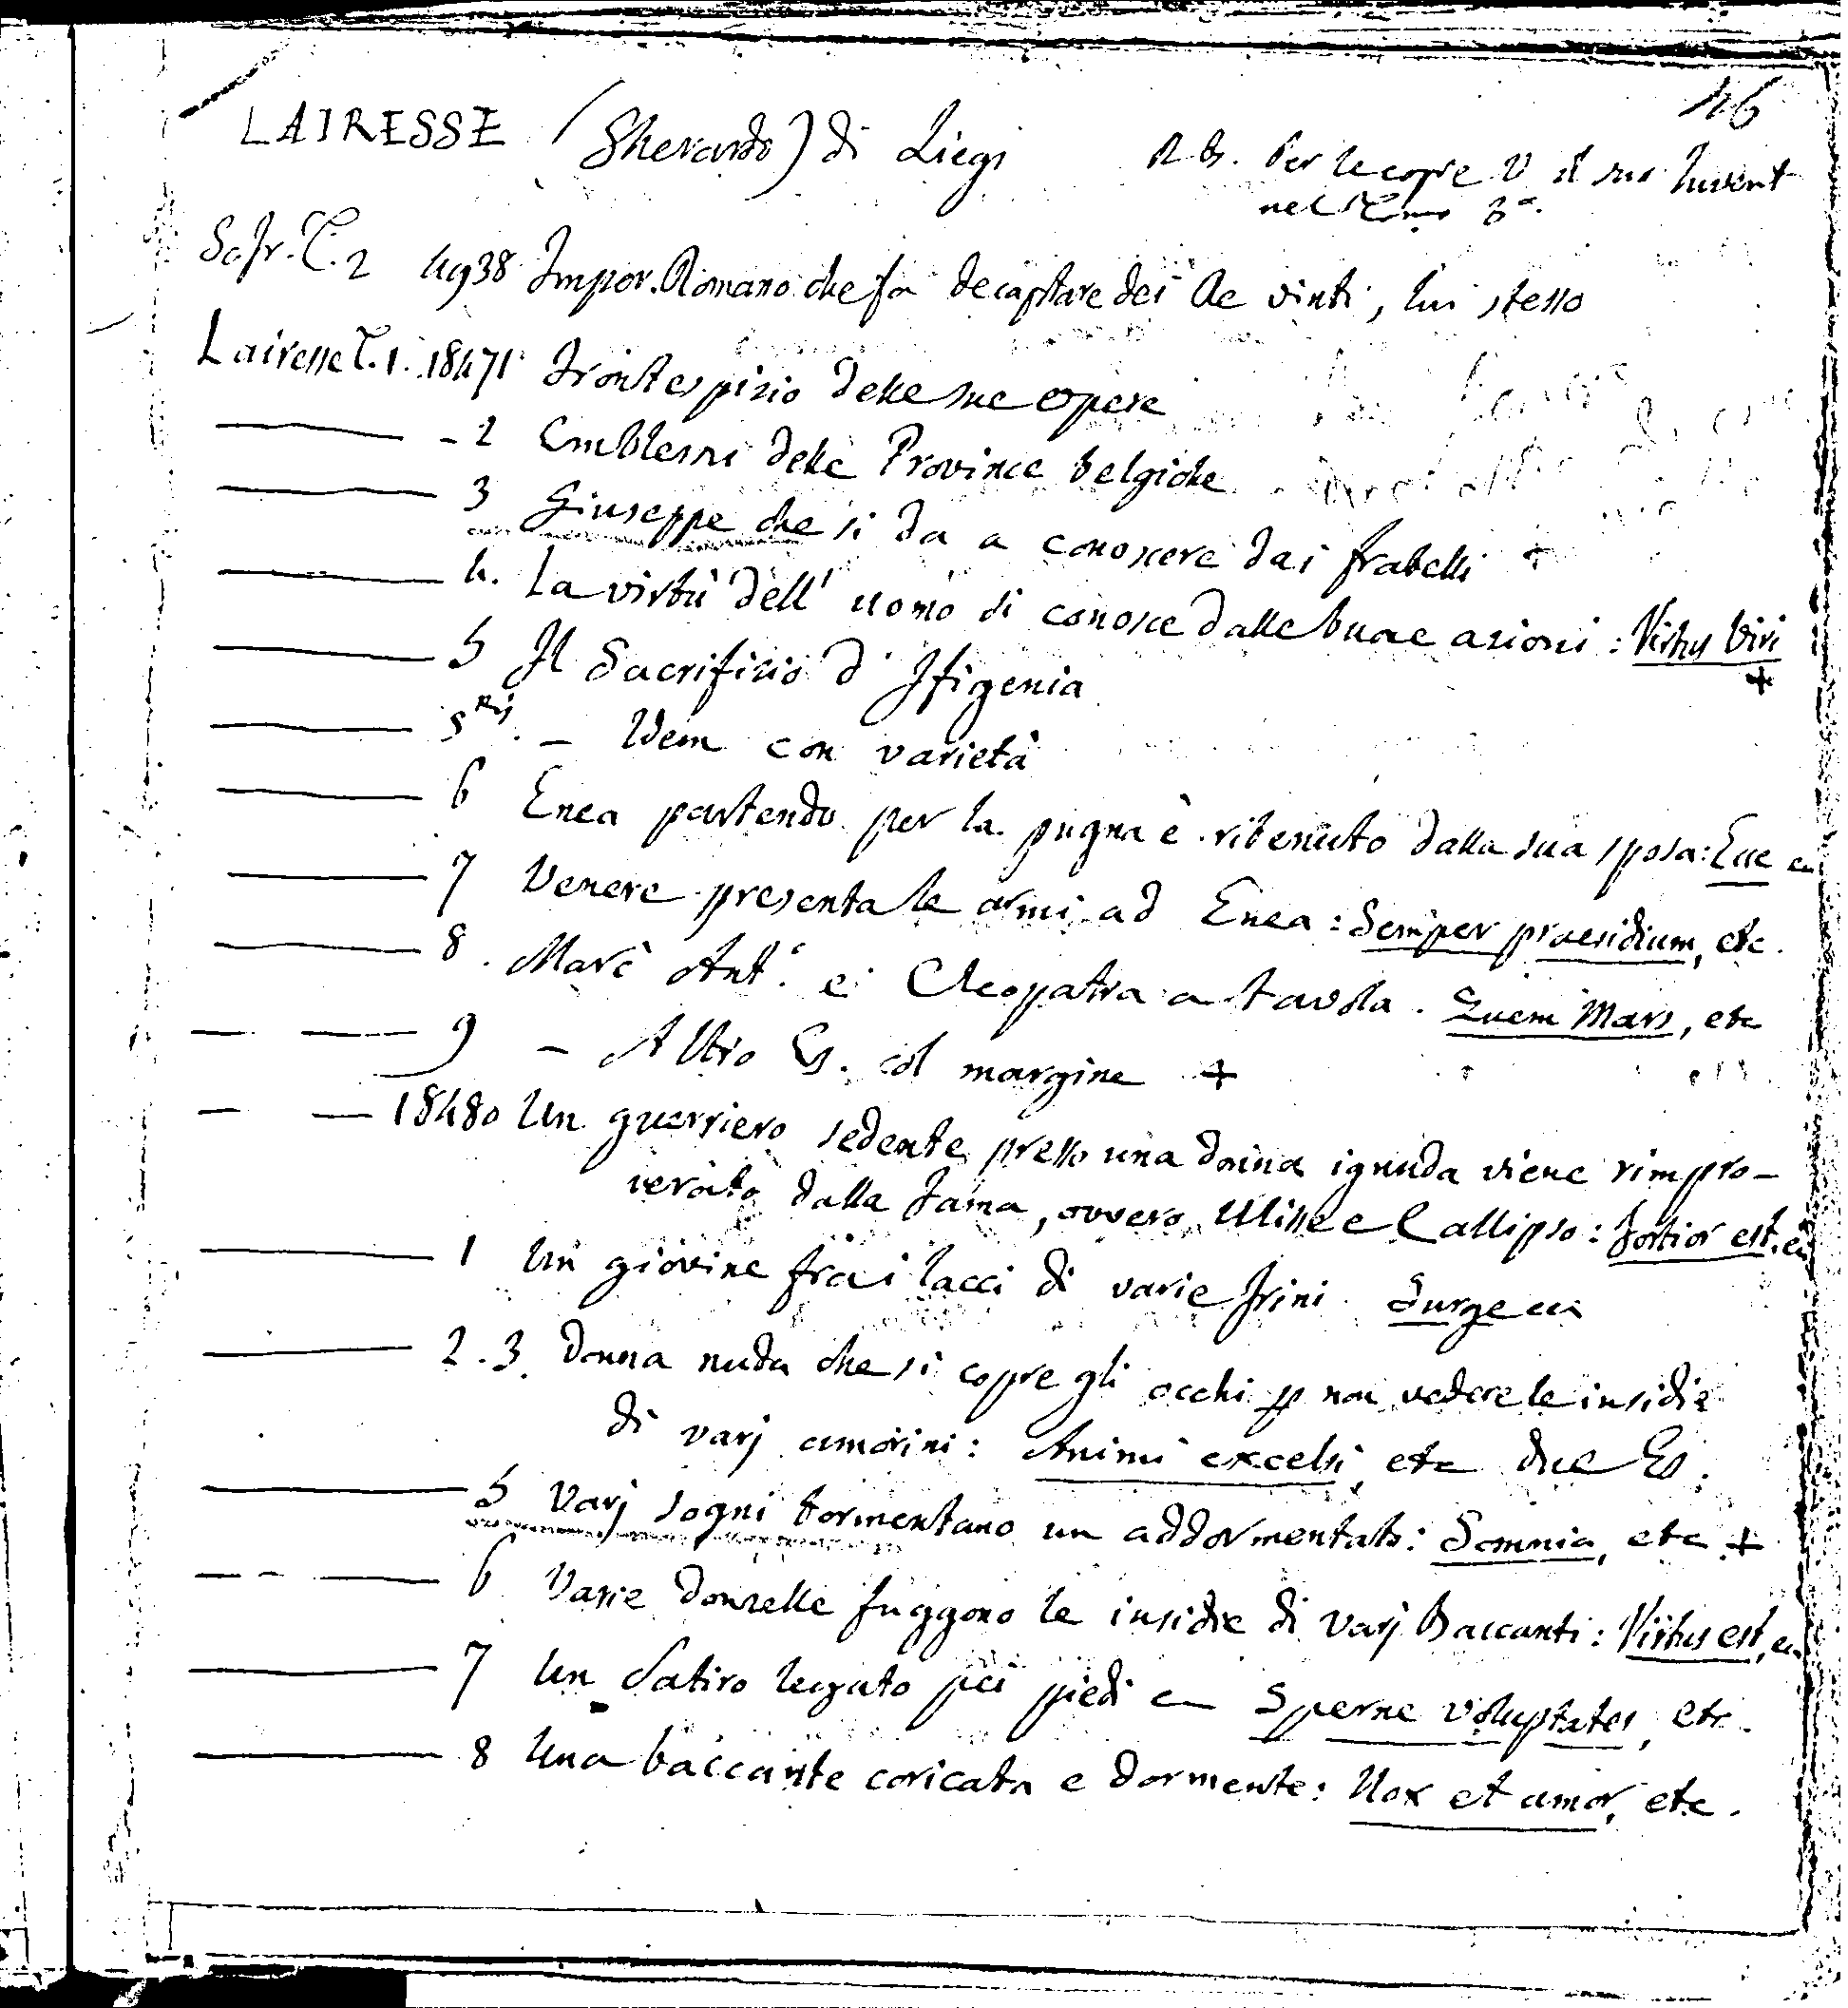 46
LAIRESSE (Gherardo) di Liegi
N B. Per le copie V. il suo Invent
nel Tomo 3º.
Sc.fr. T. 2 4938 Imper. Romano che fa decapitare dei Re vinti, lui stesso
Lairesse T. 1. 18471 Frontespizio delle sue opere
- 2 Emblemi delle Province belgiche
3 Giuseppe che si da a conoscere dai fratelli +
4. La virtù dell' uomo si conosce dalle buone azioni : Virtus Viri +
5 Il Sacrifizio d' Ifigenia
5 Bis. - Idem con varietà
6 Enea partendo per la pugna è ritenuto dalla sua sposa:
7 Venere presenta le armi ad Enea : Semper praesidium, etc.
8. Marc' Ant.º e Cleopatra a tavola . Quem Mars, etc
9 - Altro Es. col margine +
18480 Un guerriero sedente presso una donna ignuda viene rimpro-
verato dalla Fama, ovvero Ulisse e Callipso : Fortior est, etc
1 Un giovine fra i lacci di varie Frini . Surge etc
2 . 3. Donna nuda che si copre gli occhi p non vedere le insidie
di varj amorini : Animi excelsi, etc due Es.
5 Varj sogni tormentano un addormentato : Somnia, etc +
6 Varie donzelle fuggono le insidie di varj Baccanti : Virtus est, etc
7 Un Satiro legato pei piedi etc Sperne voluptates, etc.
8 Una baccante coricata e dormente : Nox et amor, etc.